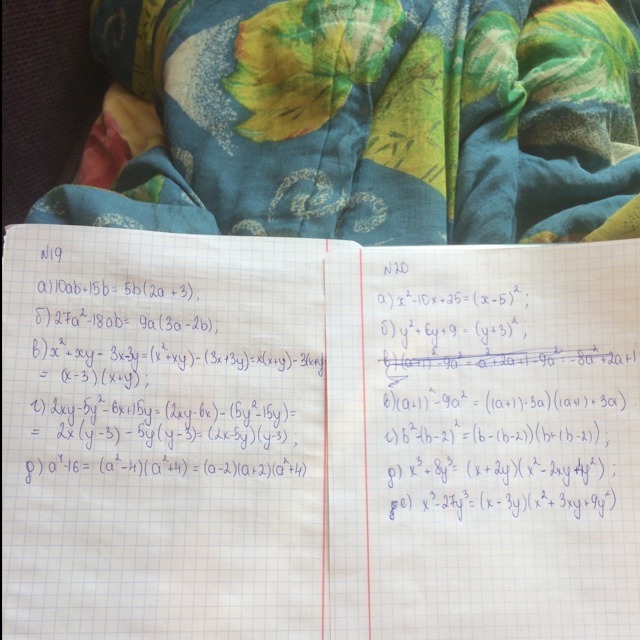 N19
а) 10ab+15b = 5b(2a+3);
б) 27a²-18ab = 9a(3a-2b);
в) x²+xy-3x-3y=(x²+xy)-(3x+3y)=x(x+y)-3(x+y)
= (x-3)(x+y);
г) 2xy-5y²-6x+15y=(2xy-6x)-(5y²-15y)=
= 2x(y-3)-5y(y-3)=(2x-5y)(y-3);
д) a⁴-16=(a²-4)(a²+4)=(a-2)(a+2)(a²+4)
N20
а) x²-10x+25=(x-5)²;
б) y²+6y+9=(y+3)²;
в) (a+1)²-9a²=((a+1)-3a)((a+1)+3a)
г) b²-(b-2)²=(b-(b-2))(b+(b-2));
д) x³+8y³=(x+2y)(x²-2xy+4y²);
е) x³-27y³=(x-3y)(x²+3xy+9y²)